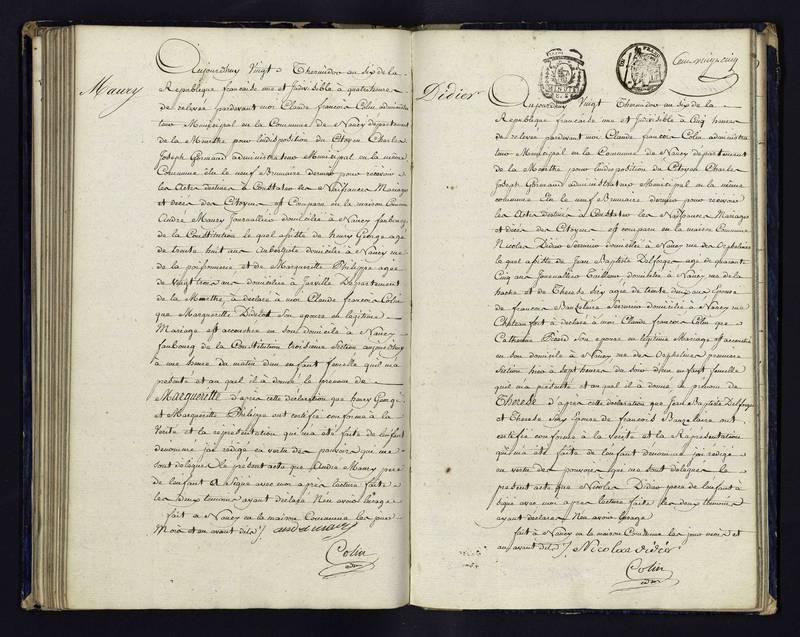 Maury
Aujourdhuy Vingt Thermidor an Six de la
République francaise une et Indivisible à quatre heures
de relevée pardevant moi Claude francois Colin administra
teur Municipal en la Commune de Nancy département
de la Meurthe pour lindisposition du Citoyen Charles
Joseph Germand administrateur Municipal en la même
Commune élu le neuf Brumaire dernier pour recevoir
les Actes destinés à Constater les Naissances Mariages
et décès des Citoyens est Comparu en la maison Commune
André Maury Journallier domicilié à Nancy faubourg
de la Constitution lequel assisté de henry George agé
de trente huit ans domicilié à Nancy rue
de la poissonnerie et de Margueritte Philippe agée
de Vingt trois ans domiciliée à Jarville Département
de la Meurthe, à déclaré à moi Claude francois Colin
que Marguerille Didelot Son épouse en légitime
Mariage est accouchée en son domicile à Nancy
faubourg de la Constitution troisieme Section aujourdhuy
à une heure du matin d'un enfant femelle quil m'a
présenté et au quel il à donné le prenom de
Marguerette d'après cette déclaration que henry George
et Marguerite Philippe ont certifiée conforme à la
Verité et la représentation qui m'a été faite de lenfant
denommé jai rédigé en vertu des pouvoirs qui me
sont délégués le présent acte que André Maury pere
de lenfant a Signé avec moi après lecture faite
les deux temoins ayant déclaré Nen avoir l'usage
fait à Nancy en la maison Commune les jour
Mois et an avant dits ./. andré maury
Colin
adm
MINUTE
Cent vingt cinq
Didier
Aujourdhuy Vingt Thermidor an six de la
République francaise une et Indivisible à Cinq heures
de relevée pardevant moi Claude francois Colin administra
teur Municipal en la Commune de Nancy département
de la Meurthe pour lindisposition du Citoyen Charles
Joseph Germand administrateur Municipal en la même
commune Elu le neuf Brumaire dernier pour recevoir
les Actes destinés à Constater les Naissances Mariages
et décès des Citoyens est comparu en la maison Commune
Nicolas Didier Serrurier domicilié à Nancy rue des Orphelines
lequel assisté de Jean Baptiste Delforge agé de quarante
Cinq ans Tailleur domicilié à Nancy rue de la
hache et de Therese agée de trente deux ans Epouse
de francois Serrurier domiciliée à Nancy rue
Chateaufort à déclaré à moi Claude francois Colin que
Catherine Picard Son epouse en légitime Mariage est accouchée
en son domicile à Nancy rue des Orphelines premiere
Section hier à sept heures du soir d'un enfant femelle
quil m'a présenté et au quel il à donné le prenom de
Thérese d'après cette déclaration que Jean Baptiste Delforge
et Therese Epouse de francois ont
certifiée conforme à la Verité et la Représentation
qui m'a été faite de lenfant denommé jai redigé
en vertu des pouvoirs qui me sont délégués le
présent acte que Nicolas Didier pere de lenfant à
signé avec moi après lecture faite les deux temoins
ayant déclaré Nen avoir l'usage
fait à Nancy en la maison Commune les jour mois et
an avant dits ./. Nicolas didier
Colin
adm